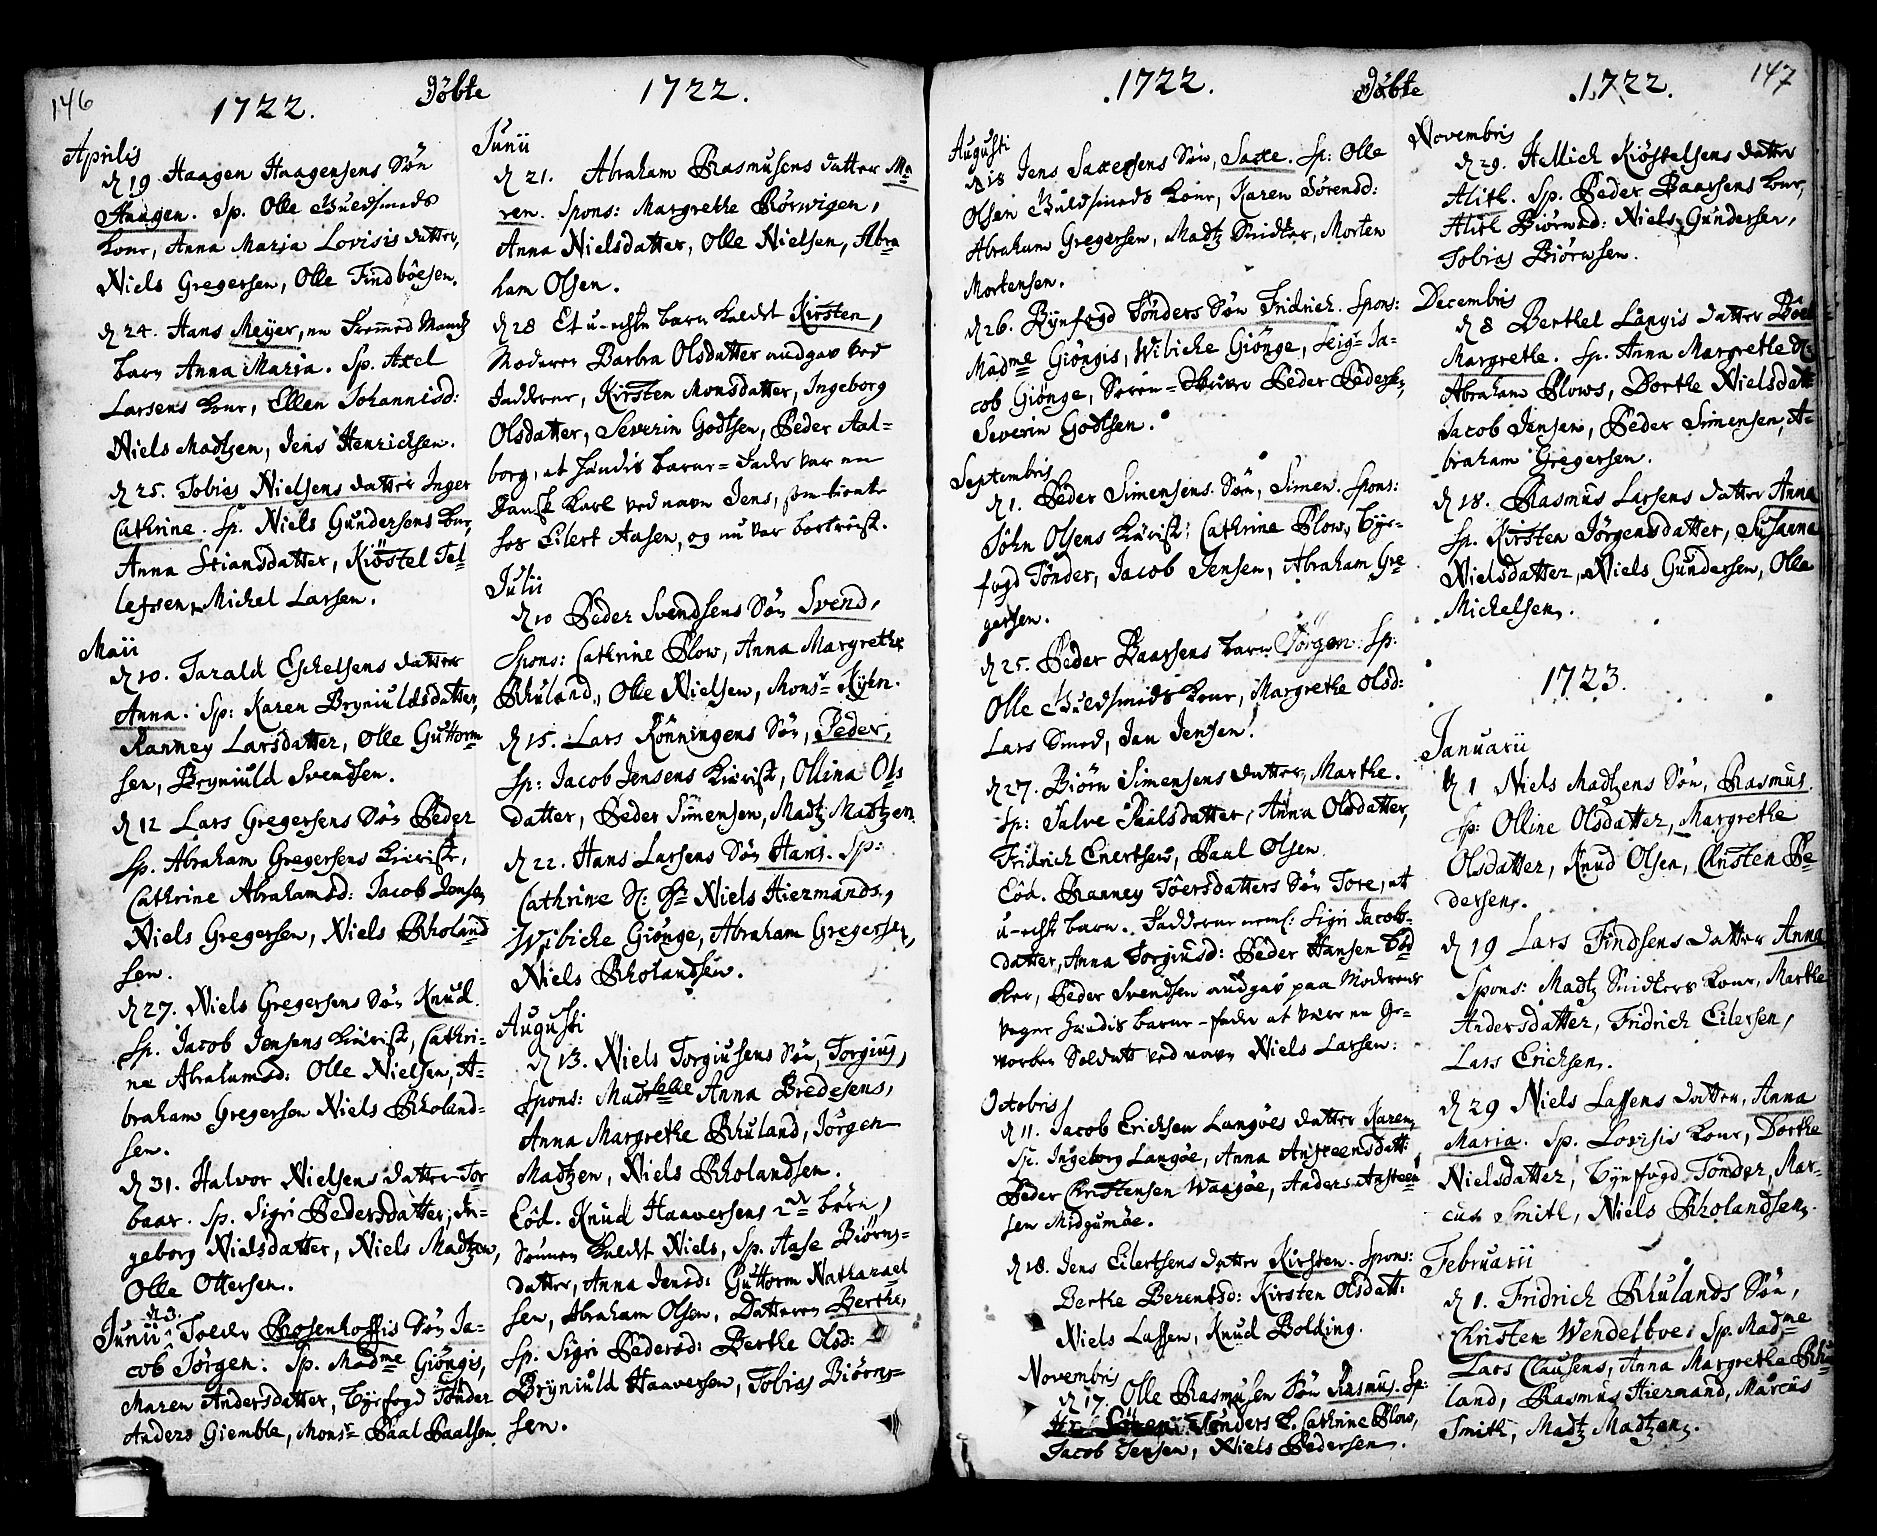 146
1722.
Döbte
1722.
Aprilis
d 19 Haagen Haagensens Sön
Haagen. Sp. Olle Guldsmeds
kone, Anna Maria Lovisis datter,
Niels Gregersen, Olle Findböesen.
d 24. Hans Meÿer, en fremmed Mands
barn Anna Maria. Sp. Axel
Larsens kone, Ellen Johannisd:
Niels Madtzen, Jens Henrichsen.
d 25. Tobias Nielsens datter Inger
Cathrine. Sp. Niels Gundersens kone,
Anna Stiansdatter, Kiöstel Tel-
lefsen, Michel Larsen.
Maii
d 10. Tarald Eschelsens datter
Anna. Sp: Karen Bryniuldsdatter,
Ranney Larsdatter, Olle Guttorm
sen, Bryniuld Svendsen.
d 12 Lars Gregersens Sön Peder
Sp. Abraham Gregersens kiæriste,
Cathrine Abrahamsd: Jacob Jensen
Niels Gregersen, Niels Rholand
sen.
d 27. Niels Gregersens Sön Knud.
Sp. Jacob Jensens kiærist, Cathri-
ne Abrahamsd: Olle Nielsen, A-
braham Gregersen Niels Rholand-
sen.
d 31. Halvor Nielsens datter Tor
baar. Sp. Sigri Pedersdatter, In-
geborg Nielsdatter, Niels Madtzen,
Olle Ottersen.
d 3.
Junii Toldr Rosenhoffis Sön Ja-
cob Jörgen. Sp. Madme Giöngis,
Maren Andersdatter, Byefogd Tönder
Anders Giemble, Monsr Paal Paalsen
Junii
d 21. Abraham Rasmusens datter Ma
ren. Spons: Margrethe Rörwigen,
Anna Nielsdatter, Olle Nielsen, Abra
ham Olsen.
d 28 Et u-echte barn kaldet Kirsten,
Moderen Barbra Olsdatter udgav ved
Fadderne, Kirsten Monsdatter, Ingeborg
Olsdatter, Severin Godtsen, Peder Aal-
borg, at hendis barne-Fader var en
Dansk karl ved navn Jens, som tiente
hos Eilert Aasen, og nu var bortreist.
Julii
d 10 Peder Svendsens Sön Svend,
Spons: Cathrine Plow, Anna Margrethe
Rhuland, Olle Nielsen, Monsr Kyhn.
d 15. Lars Rönningens Sön, Peder,
Sp: Jacob Jensens kiærist, Ollina Ols
datter, Peder Simensen, Madtz Madtzen
d 22. Hans Larsens Sön Hans. Sp:
Cathrine Niels Hiermands,
Wibiche Giönge, Abraham Gregersen,
Niels Rholandsen.
Augusti
d 13. Niels Torgiusens Sön, Torgius,
Spons: Madselle Anna Bredesens,
Anna Margrethe Rhuland, Jörgen
Madtzen, Niels Rholandsen.
Eôd. Knud Haaversens 2de börn,
Sönnen kaldet Niels, Sp. Aase Biörns-
datter, Anna Jensd: Guttorm Nathanael
sen, Abraham Olsen, Datteren Berthe,
Sp. Sigri Pedersd: Berthe Olsd:
Bryniuld Haaversen, Tobias Biörns-
sen.
1722.
Döbte
1722.
147
Augusti
d 18 Jens Saxesens Sön, Saxe. Sp: Olle
Olsen Guldsmeds kone, Karen Sörensd:
Abraham Gregersen, Madtz Snidker, Morten
Mortensen.
d 26. Byefogd Tönders Sön Fridrich. Spons:
Madme Giöngis, Wibiche Giönge, Seigr Ja-
cob Giönge, Peder Peders:
Severin Godtsen.
Septembris
d 1. Peder Simensens Sön, Simen. Spons:
John Olsens kiærist: Cathrine Plow, bye-
fogd Tönder, Jacob Jensen, Abraham Gre
gersen.
d 25. Peder Baarsens barn Jörgen. Sp:
Olle Guldsmeds kone, Margrethe Olsd:
Lars Smed, Jan Jensen.
d 27. Biörn Simensens datter, Marthe.
Sp: Salve Pailsdatter, Anna Olsdatter,
Fridrich Enertsen, Paal Olsen.
Eôd. Ranney Töersdatters Sön Tore, et
u-echt barn. Fadderne neml: Sigri Jacobs-
datter, Anna Torgiusd: Peder Hansen Böd
ker, Peder Svendsen udgav paa Moderens
vegne hendis barne-fader at være en Ge-
worben Soldatt ved navn Niels Larsen.
Octobris
d 11. Jacob Erichsen Langöes datter Karen,
Sp. Ingeborg Langöe, Anna Ansteensdatt:
Peder Christensen Waagöe, Anders Ansteen
sen Midgumöe.
d 18. Jens Eilertsens datter Kirsten. Spons:
Berthe Berentsd: Kirsten Olsdatt:
Niels Lassen, Knud Bolding.
Novembris
d 17. Olle Rasmusen Sön Rasmus. Sp:
Tönders K. Cathrine Plow,
Jacob Jensen, Niels Pedersen.
Novembris
d 29. Hellich Kiöstelsens datter
Alith. Sp. Peder Baarsens kone,
Alith Biörnsd: Niels Gundersen,
Tobias Biörnsen.
Decembris
d 8 Berthel Langis datter Böel
Margrethe. Sp. Anna Margrethe
Abraham Plows, Dorthe Nielsdatt
Jacob Jensen, Peder Simensen, A-
braham Gregersen.
d 18. Rasmus Larsens datter Anna
Sp. Kirsten Jörgensdatter, Susanna
Nielsdatter, Niels Gundersen, Olle
Michelsen.
1723.
Januarii
d 1 Niels Madtzens Sön, Rasmus.
Sp: Olline Olsdatter, Margrethe
Olsdatter, Knud Olsen, Christen Pe-
dersen.
d 19 Lars Findsens datter Anna
Spons: Madtz Snidkers kone, Marthe
Andersdatter, Fridrich Eilersen,
Lars Erichsen.
d 29 Niels Lassens datter, Anna
Maria. Sp. Lovisis kone, Dorthe
Nielsdatter, byefogd Tönder, Mar-
cus Smith, Niels Rholandsen.
Februarii
d 1. Fridrich Rhulands Sön,
Christen Wendelboe. Sp. Madme
Lars Clausens, Anna Margrethe Rhu
land, Rasmus Hiermand, Marcus
Smith, Madtz Madtzen.